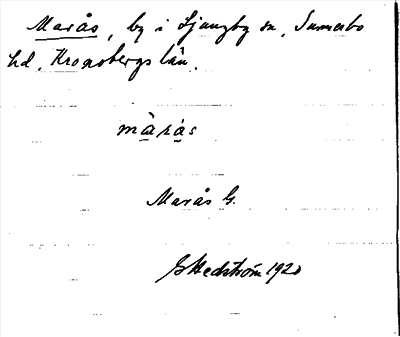 Marås, by i Ljungby sn, Sunnerbo
hd. Kronobergs län.
màrás
Marås G.
G Hedström 1920